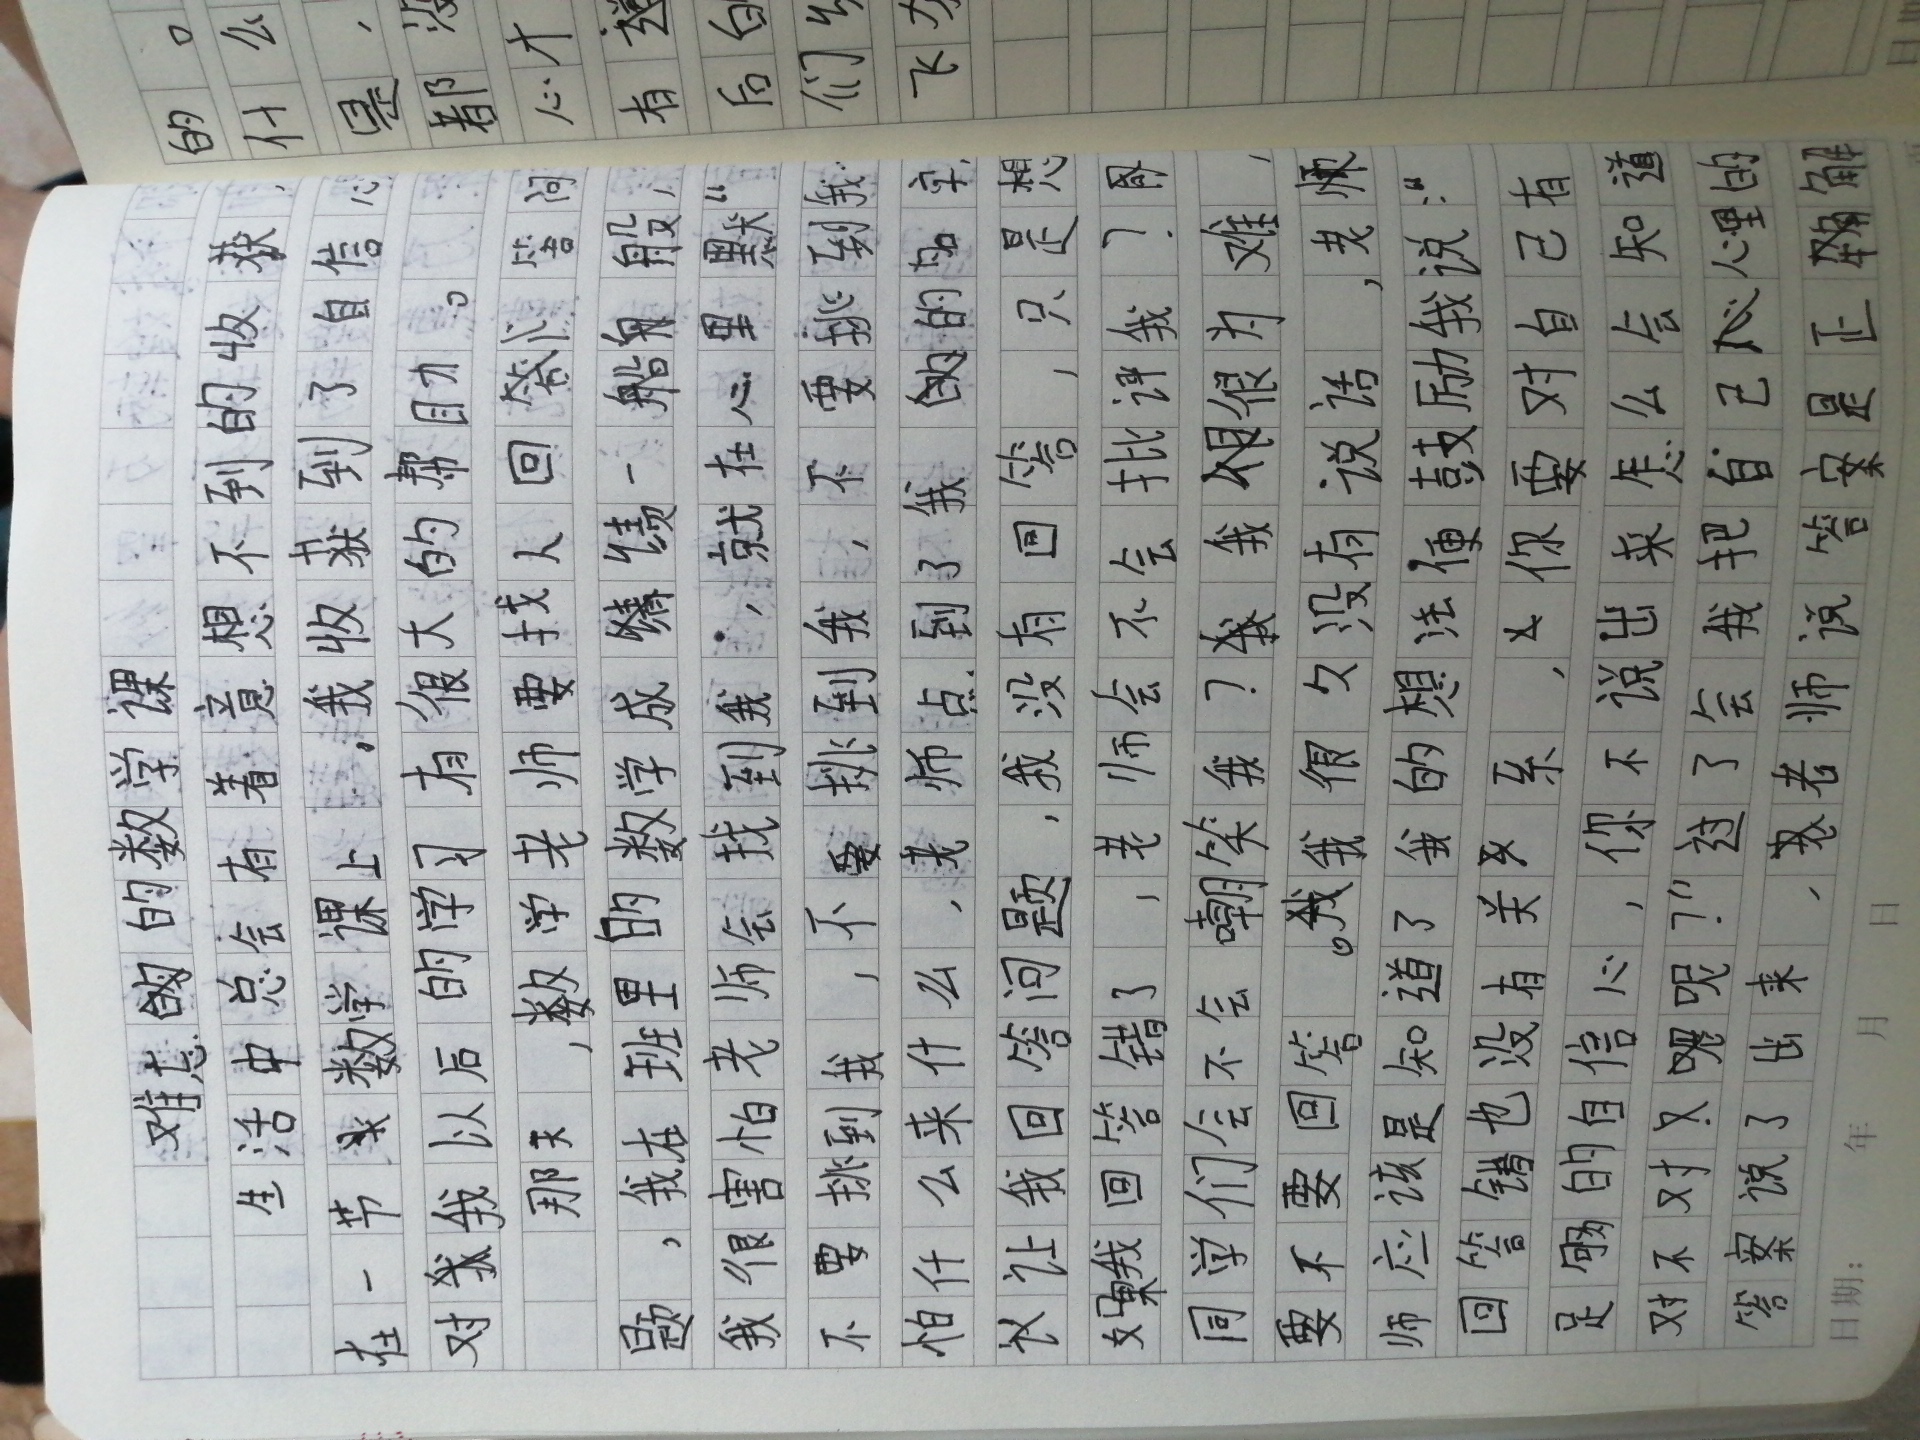 难忘的数学课
生活中总会有着意想不到的收获，
在一节数学课上，我收获到了自信心
对我以后的学习有很大的帮助。
那天，数学老师要找人回答问
题，我在班里的数学成绩一般，
我很害怕老师会找到我，就在心里默“
不要挑到我，不要挑到我，不要挑到我
怕什么来什么，老师点到了我的字
让我回答问题，我没有回答，只是想
如果我回答错了，老师会不会批评我？
同学们会不会嘲笑我？我很为难，
要不要回答。我很久没有说话，老
师应该是知道了我的想法便鼓励我说：“
回答错也没有关系，你要对自己有
足够的自信心，你不说出来怎么会知道
对不对呢？”过了会我把自己心里的
答案说了出来，老师说答案是正解
日期： 年 月 日
的。
什么
是，
都没
心才
有
后
们
飞